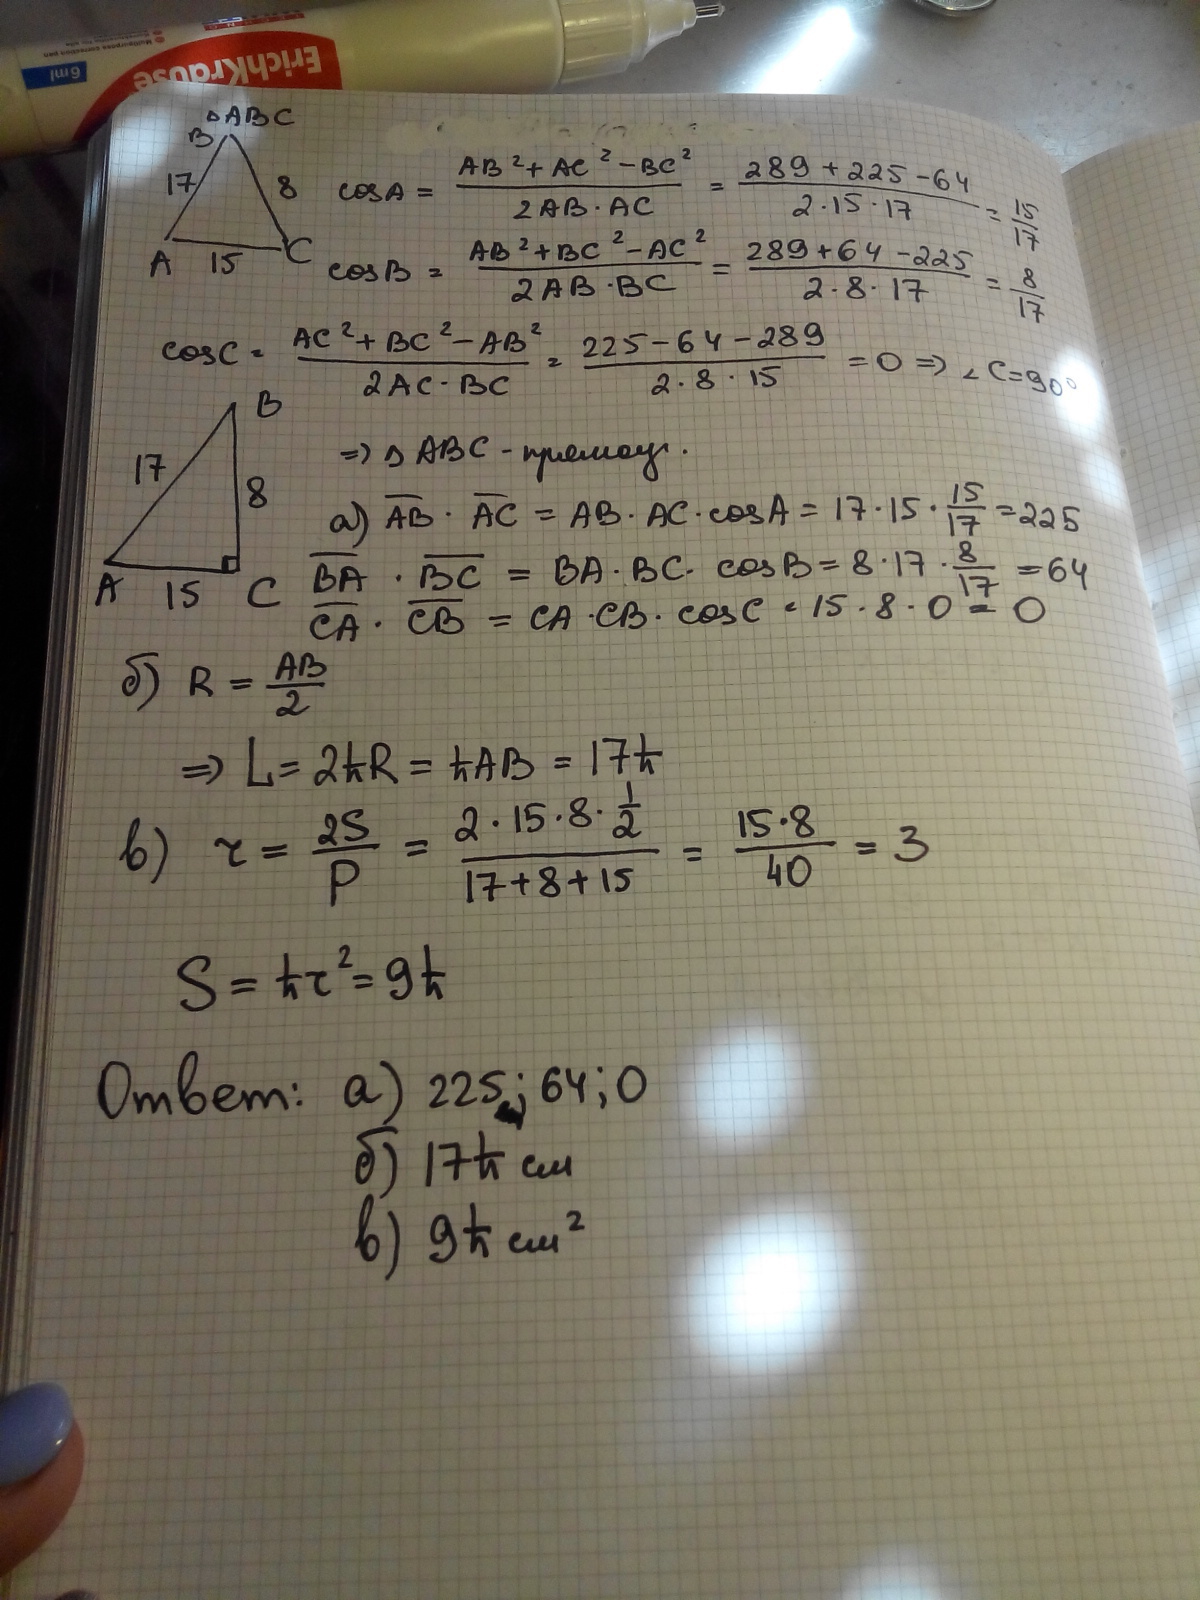 ErichKrause
6ml
Multipurpose correction pen
△ABC
B
17
8
A
15
C
cosA = AB²+AC²−BC² / 2AB·AC = 289+225−64 / 2·15·17 = 15/17
cosB = AB²+BC²−AC² / 2AB·BC = 289+64−225 / 2·8·17 = 8/17
cosC = AC²+BC²−AB² / 2AC·BC = 225−64−289 / 2·8·15 = 0 => ∠C=90°
B
17
8
A
15
C
=> △ABC - прямоуг.
а) AB · AC = AB·AC·cosA = 17·15·15/17 = 225
BA · BC = BA·BC·cosB = 8·17·8/17 = 64
CA · CB = CA·CB·cosC = 15·8·0 = 0
б) R = AB/2
=> L = 2πR = πAB = 17π
в) r = 2S/P = 2·15·8·1/2 / 17+8+15 = 15·8/40 = 3
S = πr² = 9π
Ответ: а) 225; 64; 0
б) 17π см
в) 9π см²